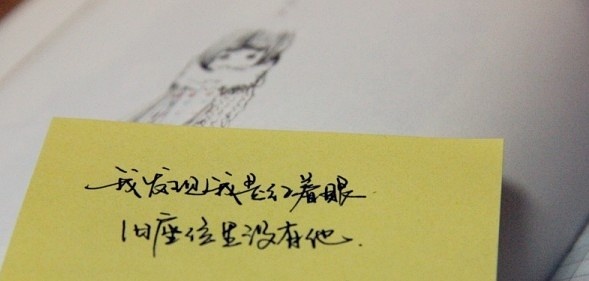 我发现我是红着眼
旧座位里没有他.